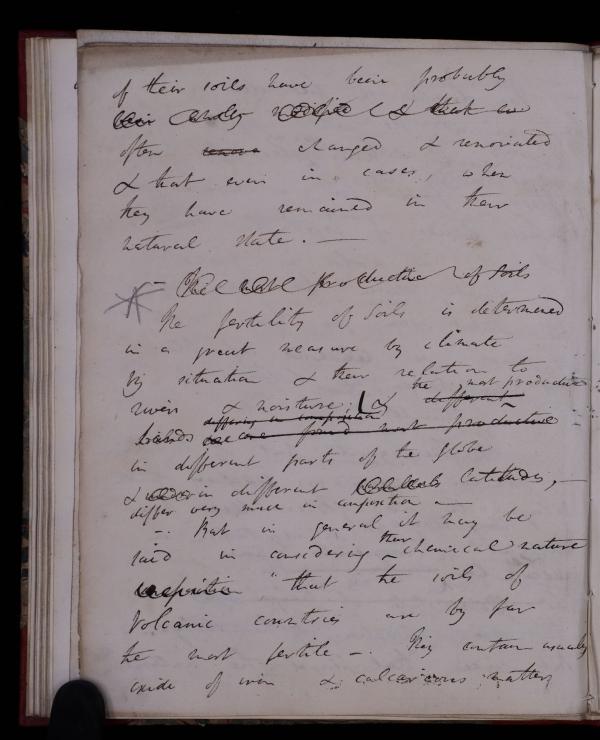 of their soils have been probably
often changed & renovated
& that even in cases, when
they have remained in their
natural state. —
— of Soils
The fertility of Soils is determined
in a great measure by climate
by situation & their relation to
rivers & moisture; & the most productive
differing in composition different
Lands are found most productive
in different parts of the globe
& in different latitudes, —
differ very much in composition —
—. But in general it may be
said in considering their chemical nature
composition "that the soils of
Volcanic countries are by far
the most fertile —. They contain usually
oxide of iron & calcareous matter,